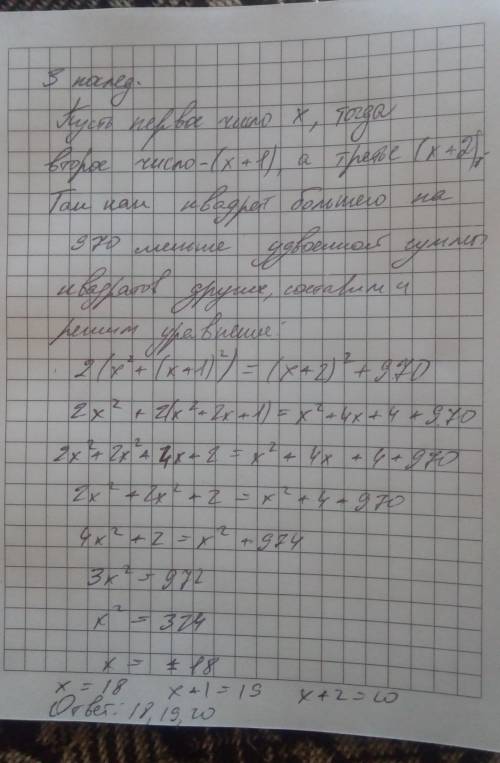 3 послед.
Пусть первое число x, тогда
второе число - (x+1), а третье (x+2).
Так как квадрат большего на
970 меньше удвоенной суммы
квадратов других, составим и
решим уравнение:
2(x² + (x+1)²) = (x+2)² + 970
2x² + 2(x²+2x+1) = x²+4x+4+970
2x²+2x²+4x+2 = x²+4x+4+970
2x²+2x²+2 = x²+4+970
4x²+2 = x²+974
3x² = 972
x² = 324
x = ±18
x = 18 x+1 = 19 x+2 = 20
Ответ: 18, 19, 20